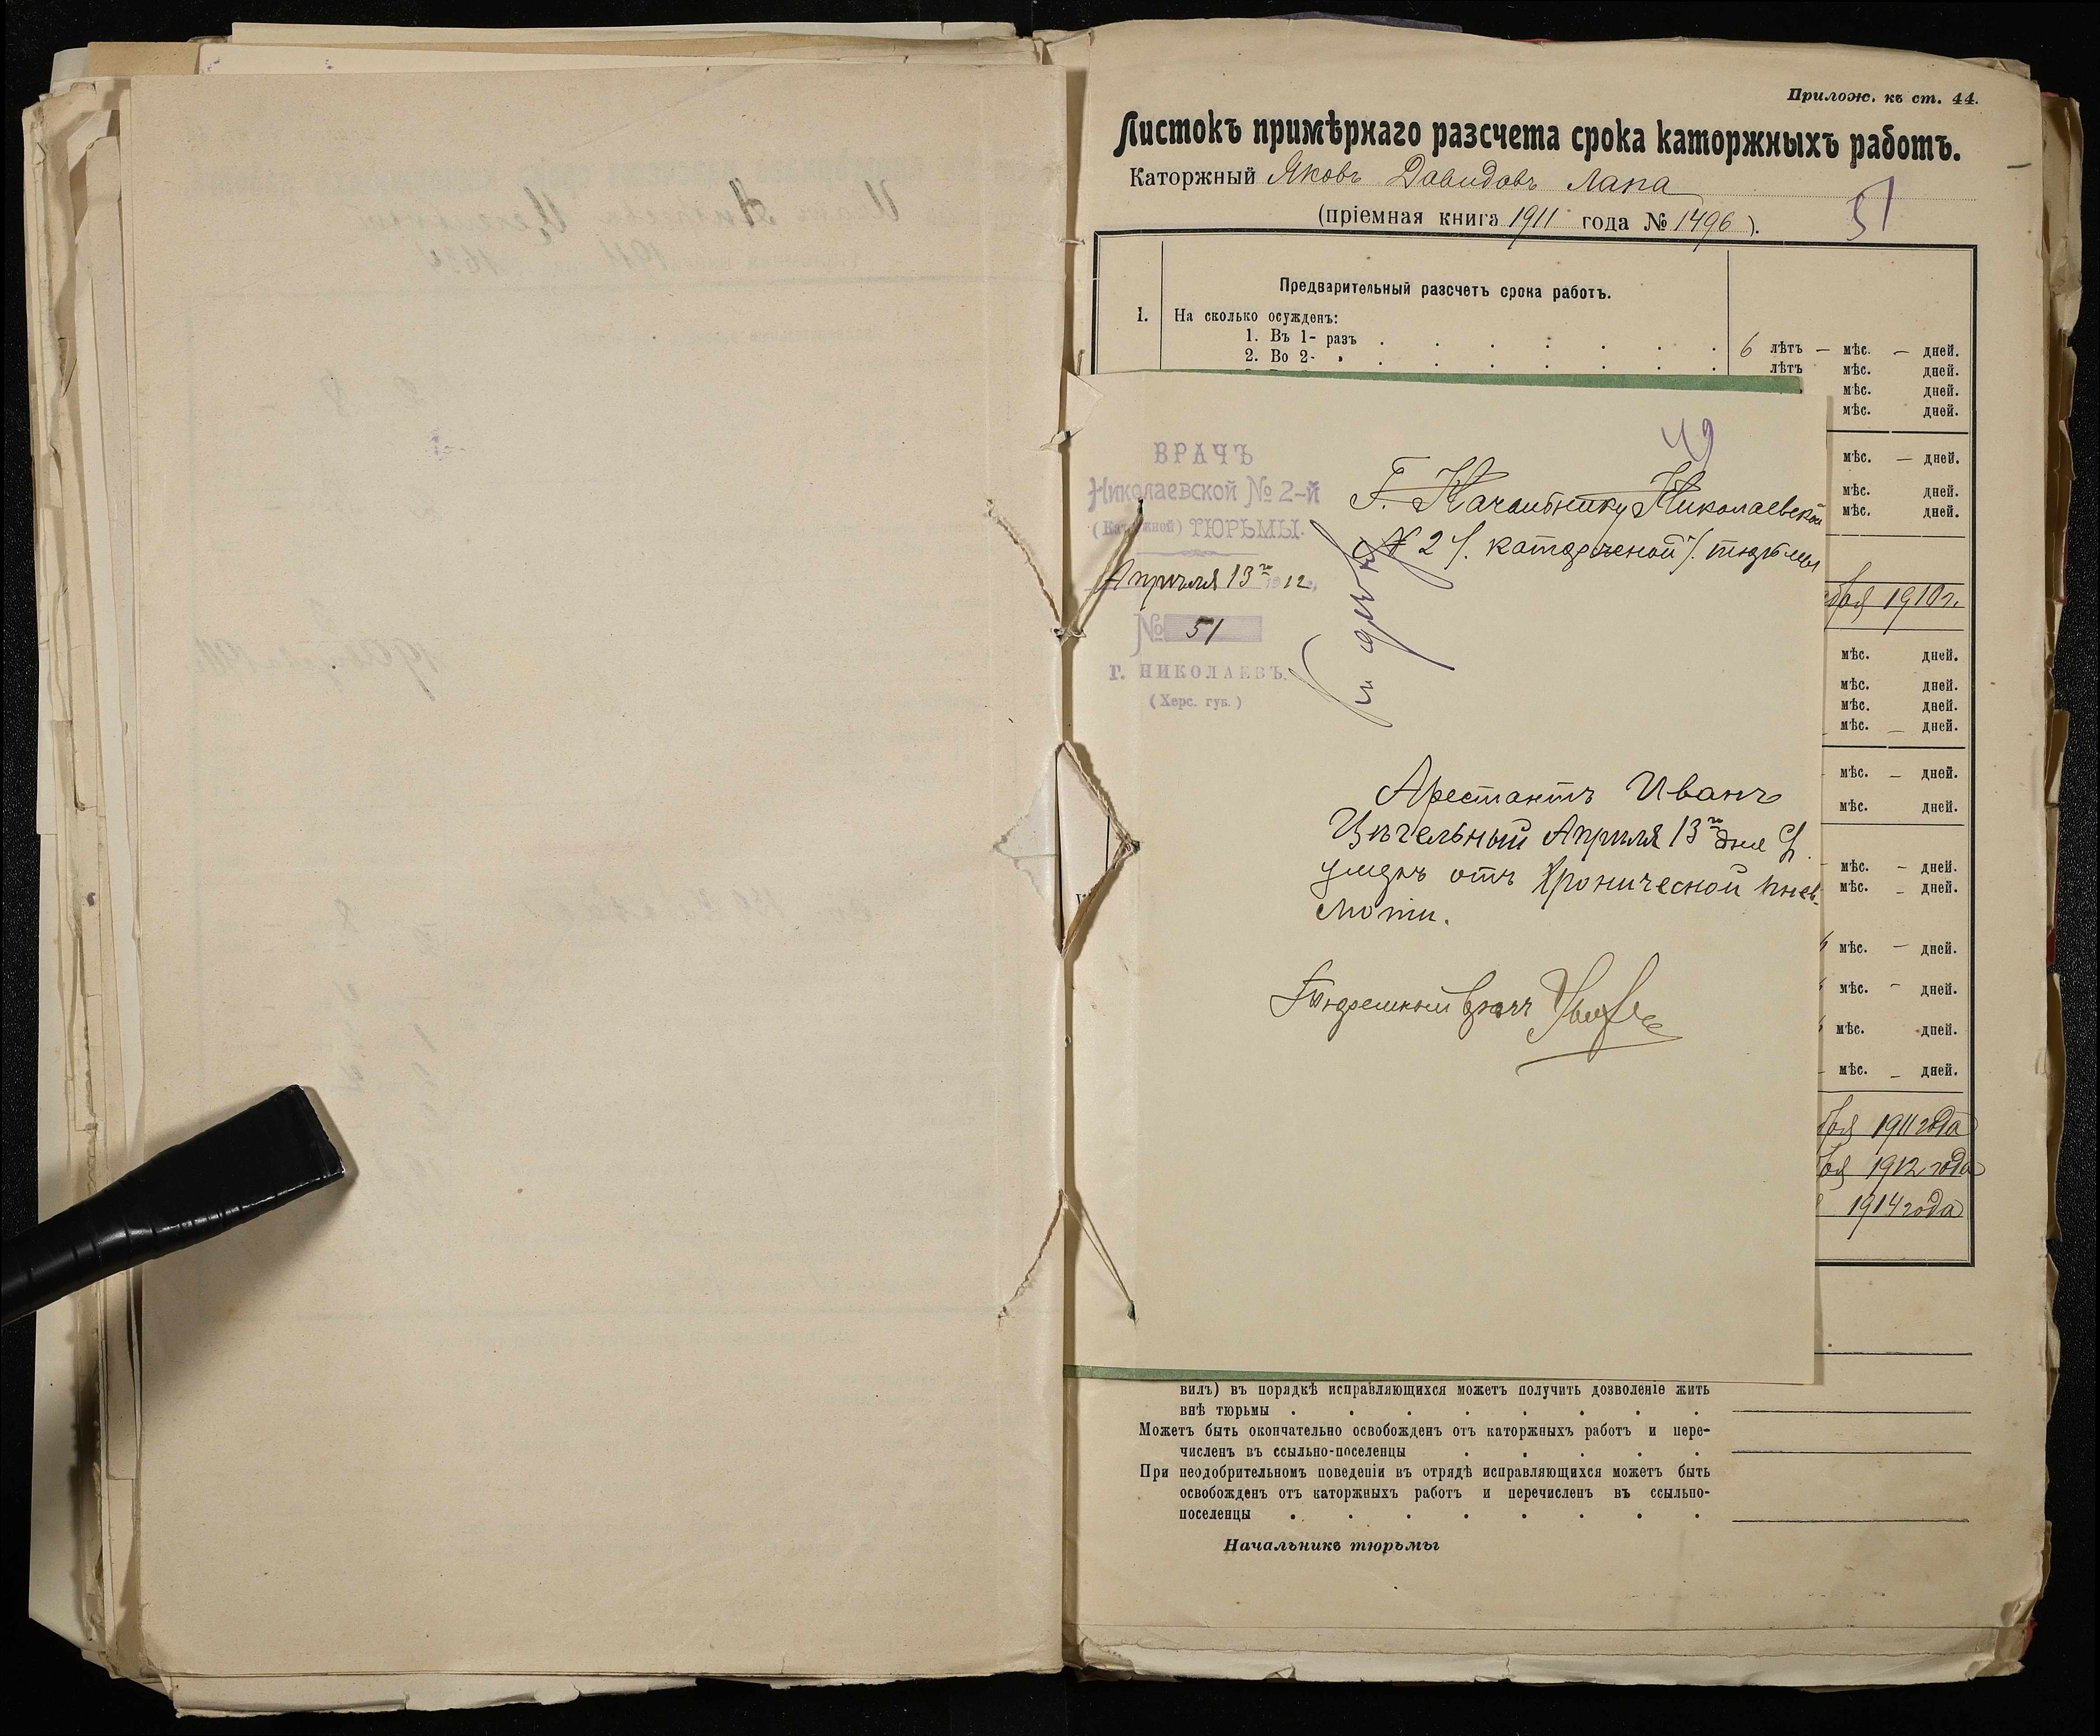 Прилож. къ ст. 44.
Листокъ примѣрнаго разсчета срока каторжныхъ работъ.
Каторжный Яковъ Давидовъ Лапа
51
(пріемная книга 1911 года № 1496).
Предварительный разсчетъ срока работъ.
I. На сколько осужденъ:
1. Въ 1- разъ . . . . . . . 6 лѣтъ — мѣс. — дней.
2. Во 2- » . . . . . . . лѣтъ мѣс. дней.
мѣс. дней.
мѣс. дней.
мѣс. — дней.
мѣс. дней.
мѣс. дней.
1910 г.
мѣс. дней.
мѣс. дней.
мѣс. дней.
мѣс. — дней.
мѣс. — дней.
мѣс. дней.
мѣс. — дней.
мѣс. — дней.
мѣс. — дней.
мѣс. — дней.
мѣс. дней.
мѣс. — дней.
1911 года
1912 года
1914 года
49
ВРАЧЪ
Николаевской № 2-й
(Каторжной) ТЮРЬМЫ.
Апрѣля 13го 1912
№ 51
Г. НИКОЛАЕВЪ.
(Херс. губ.)
Г. Начальнику Николаевской
№ 2 /. каторжной /. тюрьмы
къ дѣлу
Арестантъ Иванъ
Цѣгельный Апрѣля 13го дня
умеръ отъ Хронической пнев-
моніи.
Тюремный врачъ
вилъ) въ порядкѣ исправляющихся можетъ получить дозволеніе жить
внѣ тюрьмы . . . . . . . .
Можетъ быть окончательно освобожденъ отъ каторжныхъ работъ и пере-
численъ въ ссыльно-поселенцы . . . . .
При неодобрительномъ поведеніи въ отрядѣ исправляющихся можетъ быть
освобожденъ отъ каторжныхъ работъ и перечисленъ въ ссыльно-
поселенцы . . . . . . . .
Начальникъ тюрьмы